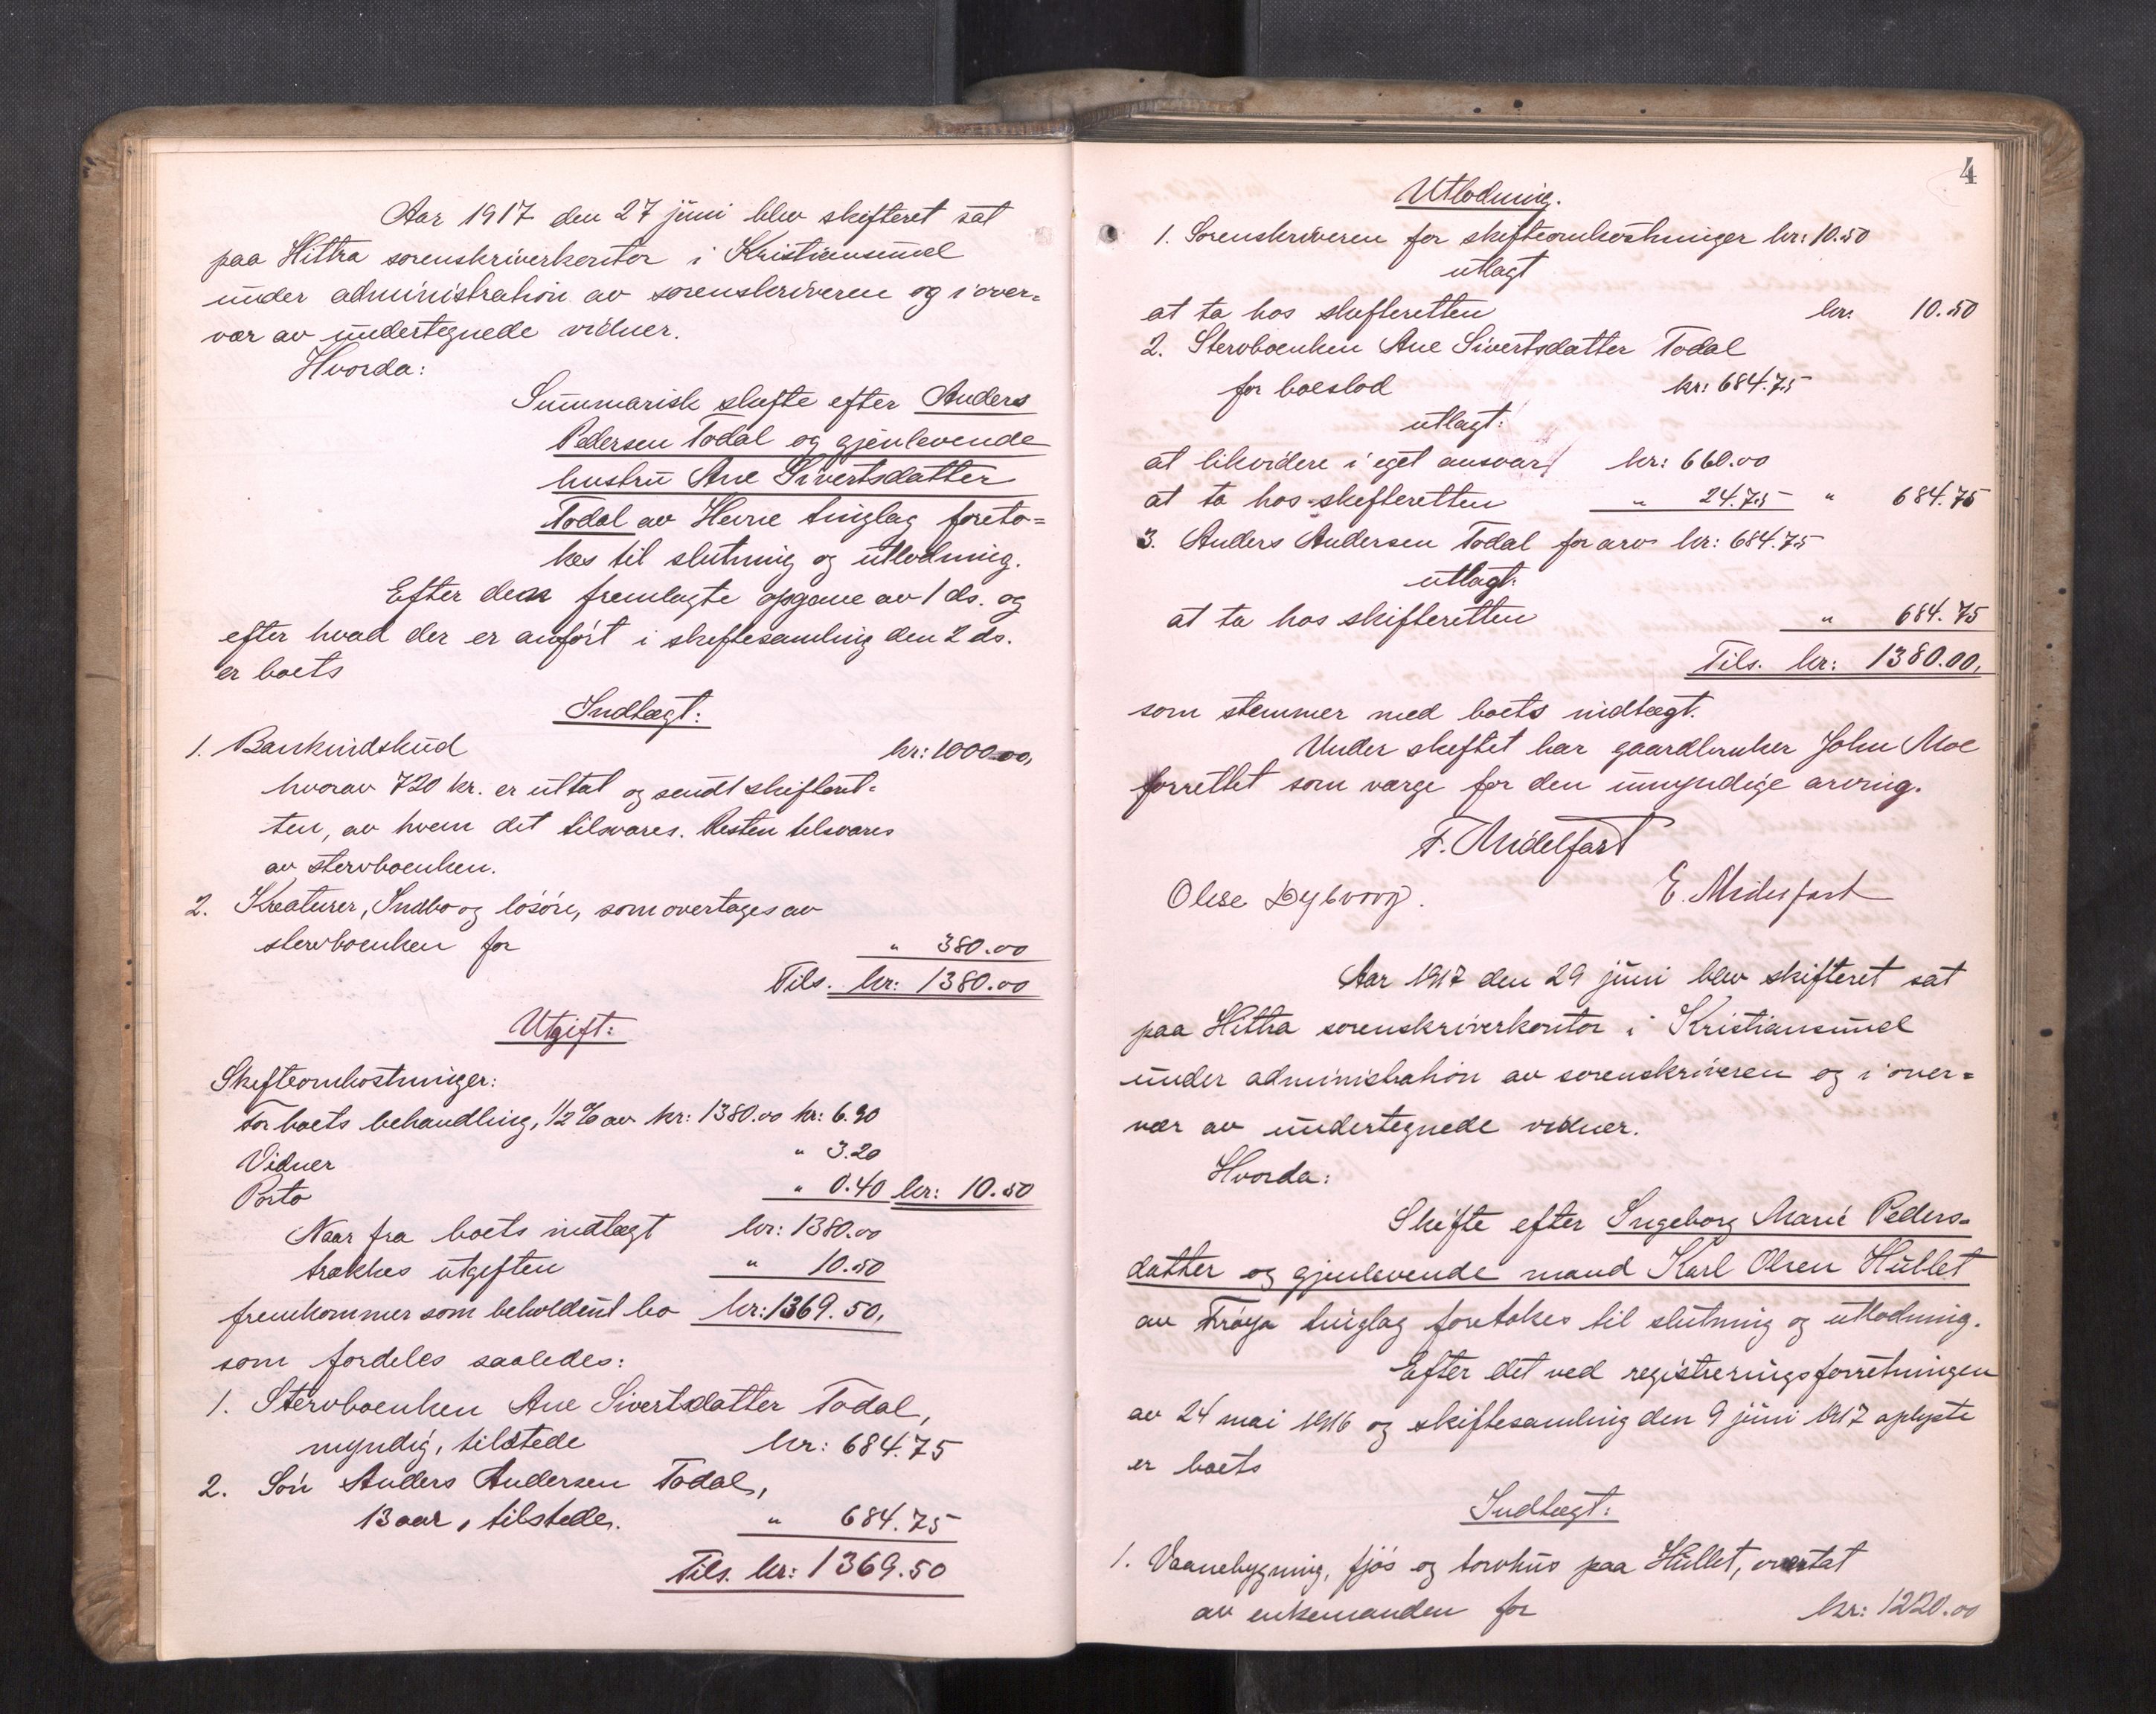 Aar 1917 den 27 juni blev skifteret sat
paa Hittra sorenskriverkontor i Kristiansund
under administration av sorenskriveren og i over=
vær av undertegnede vidner.
Hvorda:
Summarisk skifte efter Anders
Pedersen Todal og gjenlevende
hustru Ane Sivertsdatter
Todal av Hevne tinglag foreto=
kes til slutning og utlodning.
Efter den fremlagte opgave av 1 ds. og
efter hvad der er anført i skiftesamling den 2 ds.
er boets
Indtægt:
1. Bankindskud kr: 1000.00,
hvorav 720 kr. er uttat og sendt skifteret=
ten, av hvem det tilsvares. Resten tilsvares
av stervboenken.
2. Kreaturer, Indbo og løsøre, som overtages av
stervboenken for " 380.00
Tils. kr: 1380.00
Utgift:
Skifteomkostninger:
For boets behandling, 1/2 % av kr: 1380.00 kr: 6.90
Vidner " 3.20
Porto " 0.40 kr: 10.50
Naar fra boets indtægt kr: 1380.00
trækkes utgiften " 10.50
fremkommer som beholdent bo kr: 1369.50,
som fordeles saaledes:
1. Stervboenken Ane Sivertsdatter Todal,
myndig, tilstede kr: 684.75
2. Søn Anders Andersen Todal,
13 aar, tilstede. " 684.75
Tils. kr: 1369.50
4
Utlodning.
1. Sorenskriveren for skifteomkostninger kr: 10.50
utlagt
at ta hos skifteretten kr. 10.50
2. Stervboenken Ane Sivertsdatter Todal
for boeslod kr: 684.75
utlagt:
at likvidere i eget ansvar kr: 660.00
at ta hos skifteretten " 24.75 " 684.75
3. Anders Andersen Todal for arv kr: 684.75
utlagt:
at ta hos skifteretten " 684.75
Tils. kr: 1380.00,
som stemmer med boets indtægt.
Under skiftet har gaardbruker John Moe
forrettet som værge for den umyndige arving.
F. Midelfart
Olese Dybvog. E. Midelfart
Aar 1917 den 29 juni blev skifteret sat
paa Hittra sorenskriverkontor i Kristiansund
under administration av sorenskriveren og i over=
vær av undertegnede vidner.
Hvorda:
Skifte efter Ingeborg Marie Peders=
datter og gjenlevende mand Karl Olsen Hullet
av Frøya tinglag foretokes til slutning og utlodning.
Efter det ved registreringsforretningen
av 24 mai 1916 og skiftesamling den 9 juni 1917 oplyste
er boets
Indtægt:
1. Vaanebygning, fjøs og torvhus paa Hullet, overtat
av enkemanden for kr: 1220.00